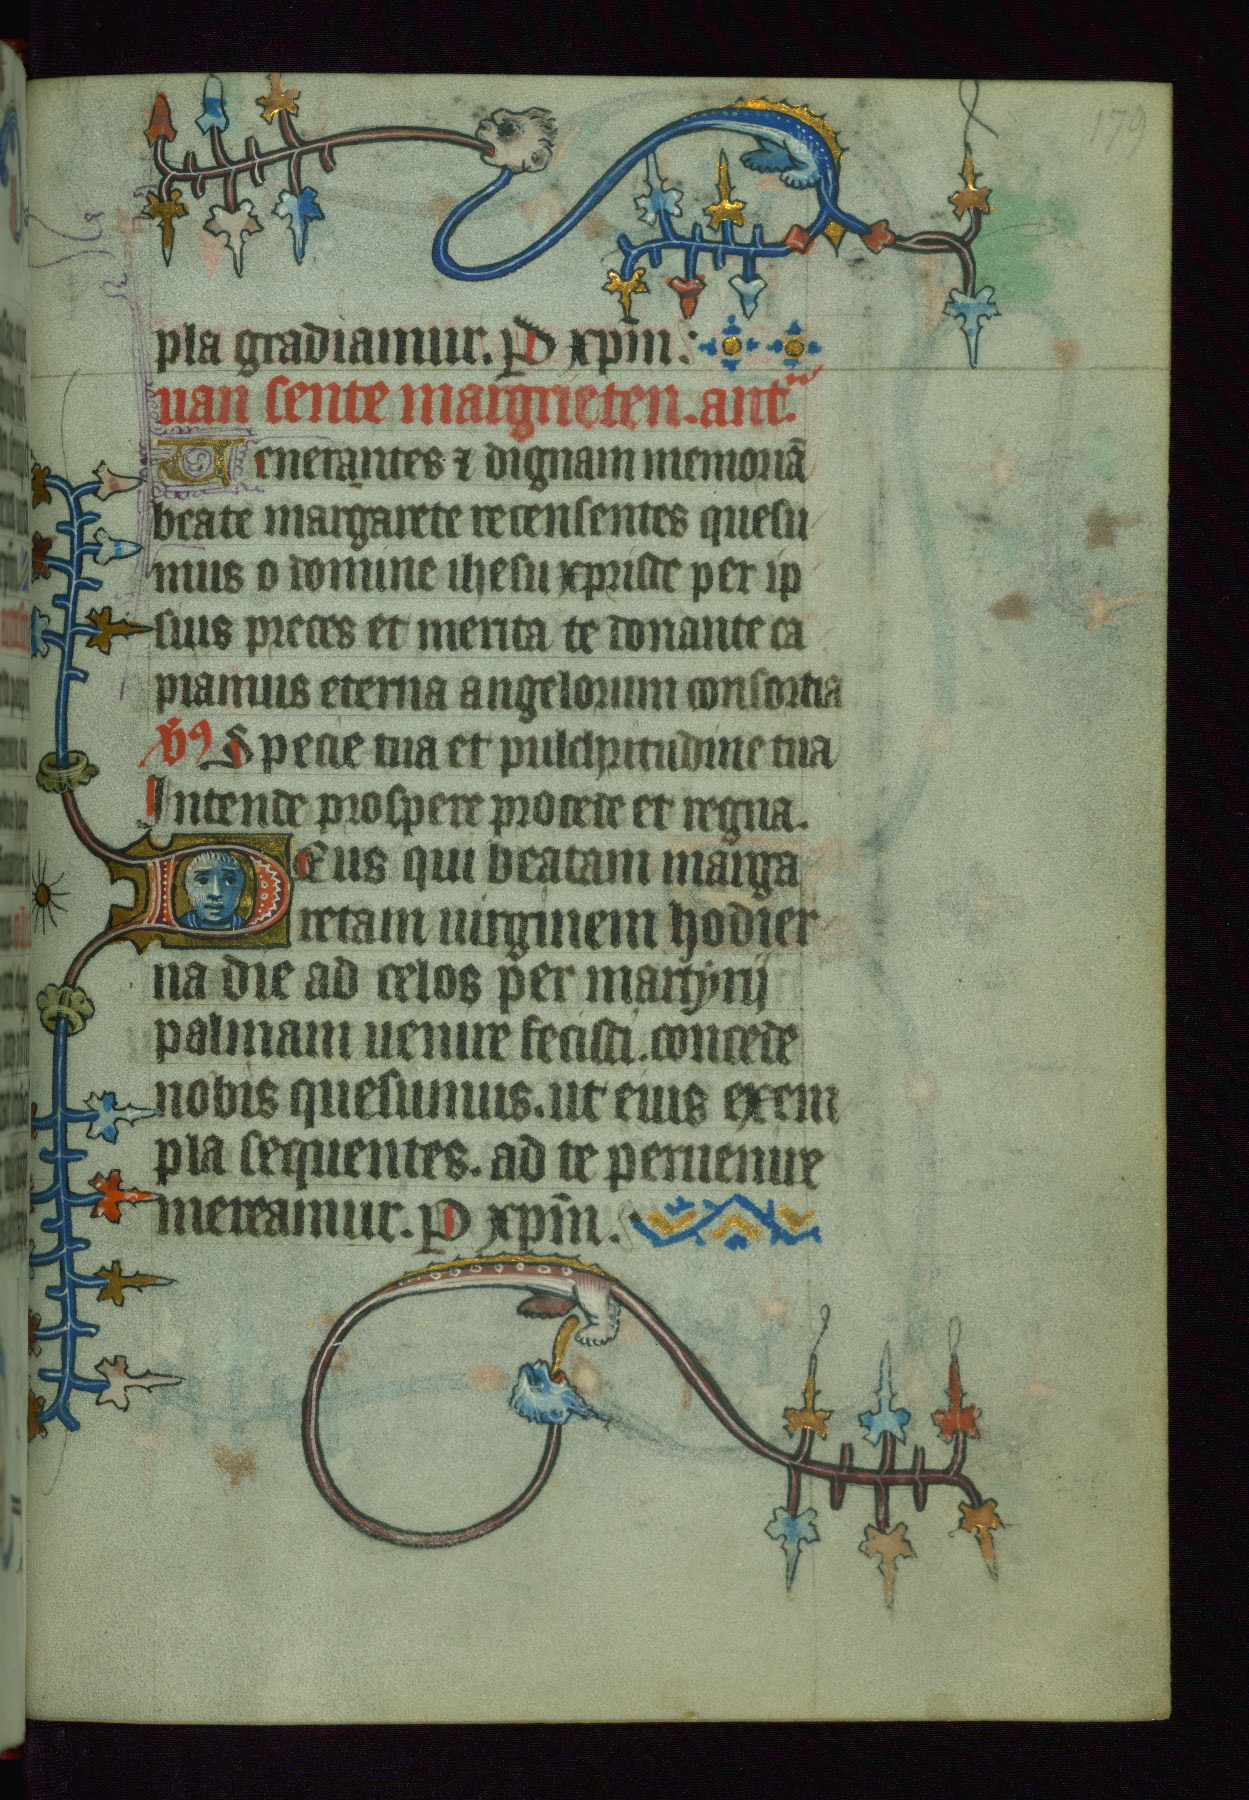 179
pla gradiamur. P D xp̄m.
uan sente margrieten. ant.
Venerantes ⁊ dignam memoriā
beate margarete recensentes quesu
mus o domine ihesu xpriste per ip
sius preces et merita te donante ca
piamus eterna angelorum consortia
Specie tua et pulchritudine tua
Intende prospere procede et regna.
Deus qui beatam marga
retam uirginem hodier
na die ad celos per martyrij
palmam uenire fecisti. concede
nobis quesumus. ut eius exem
pla sequentes. ad te peruenire
mereamur. P D xp̄m.